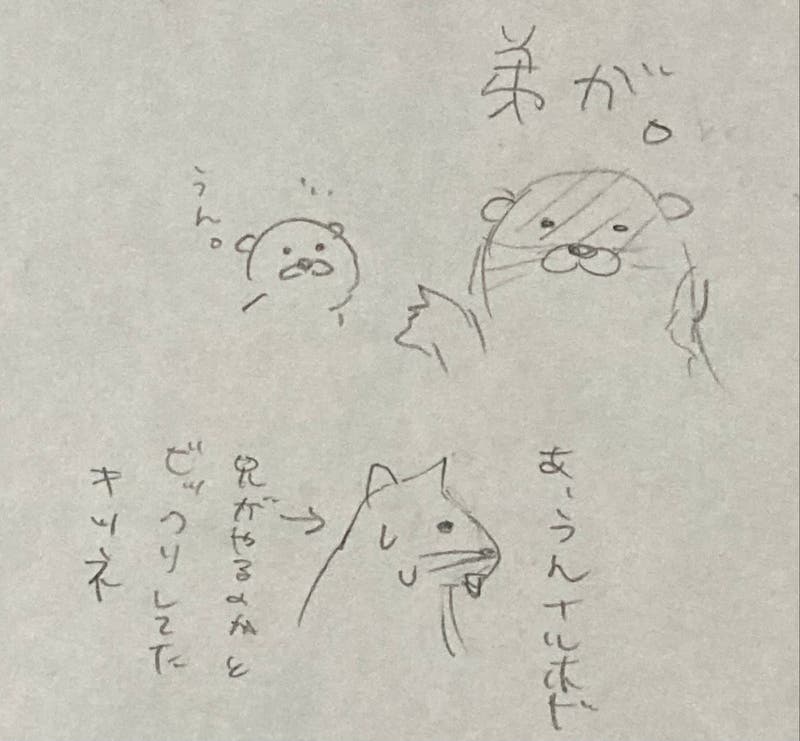 弟が。
うん。
あ、うんナルホド
兄がやるのかと
ビックリしてた
キツネ